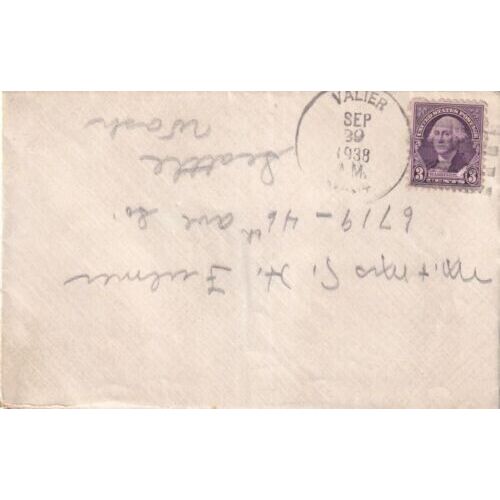 VALIER
SEP
39
1938
A.M.
UNITED STATES POSTAGE
3 3
CENTS
Mr. + Mrs G. H. Fulmer
6719 - 46th Ave So.
Seattle
Wash